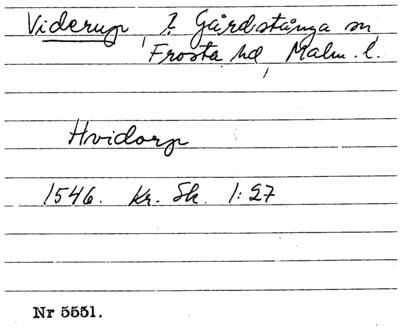 Viderup, ? Gårdstånga sn,
Frosta hd, Malm. l.
Hvidorp
1546. Kr. Sk. 1:27
Nr 5551.